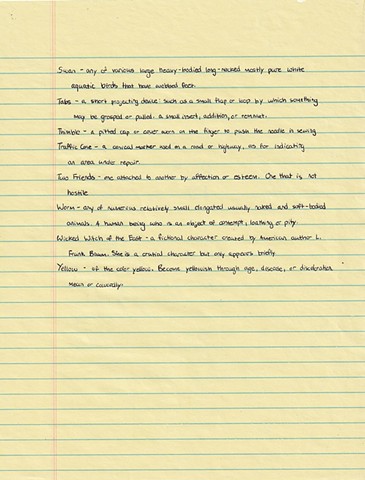 Swan - any of various large heavy-bodied long-necked mostly pure white
aquatic birds that have webbed feet.
Tabs - a short projecting device such as a small flap or loop by which something
may be grasped or pulled. a small insert, addition, or remnant.
Thimble - a pitted cap or cover worn on the finger to push the needle in sewing
Traffic Cone - a conical marker used on a road or highway, as for indicating
an area under repair.
Two Friends - one attached to another by affection or esteem. One that is not
hostile
Worm - any of numerous relatively small elongated usually naked and soft-bodied
animals. A human being who is an object of contempt, loathing or pity.
Wicked Witch of the East - a fictional character created by American author L.
Frank Baum. She is a crucial character but only appears briefly
Yellow - of the color yellow. Become yellowish through age, disease, or discoloration.
Mean or cowardly.